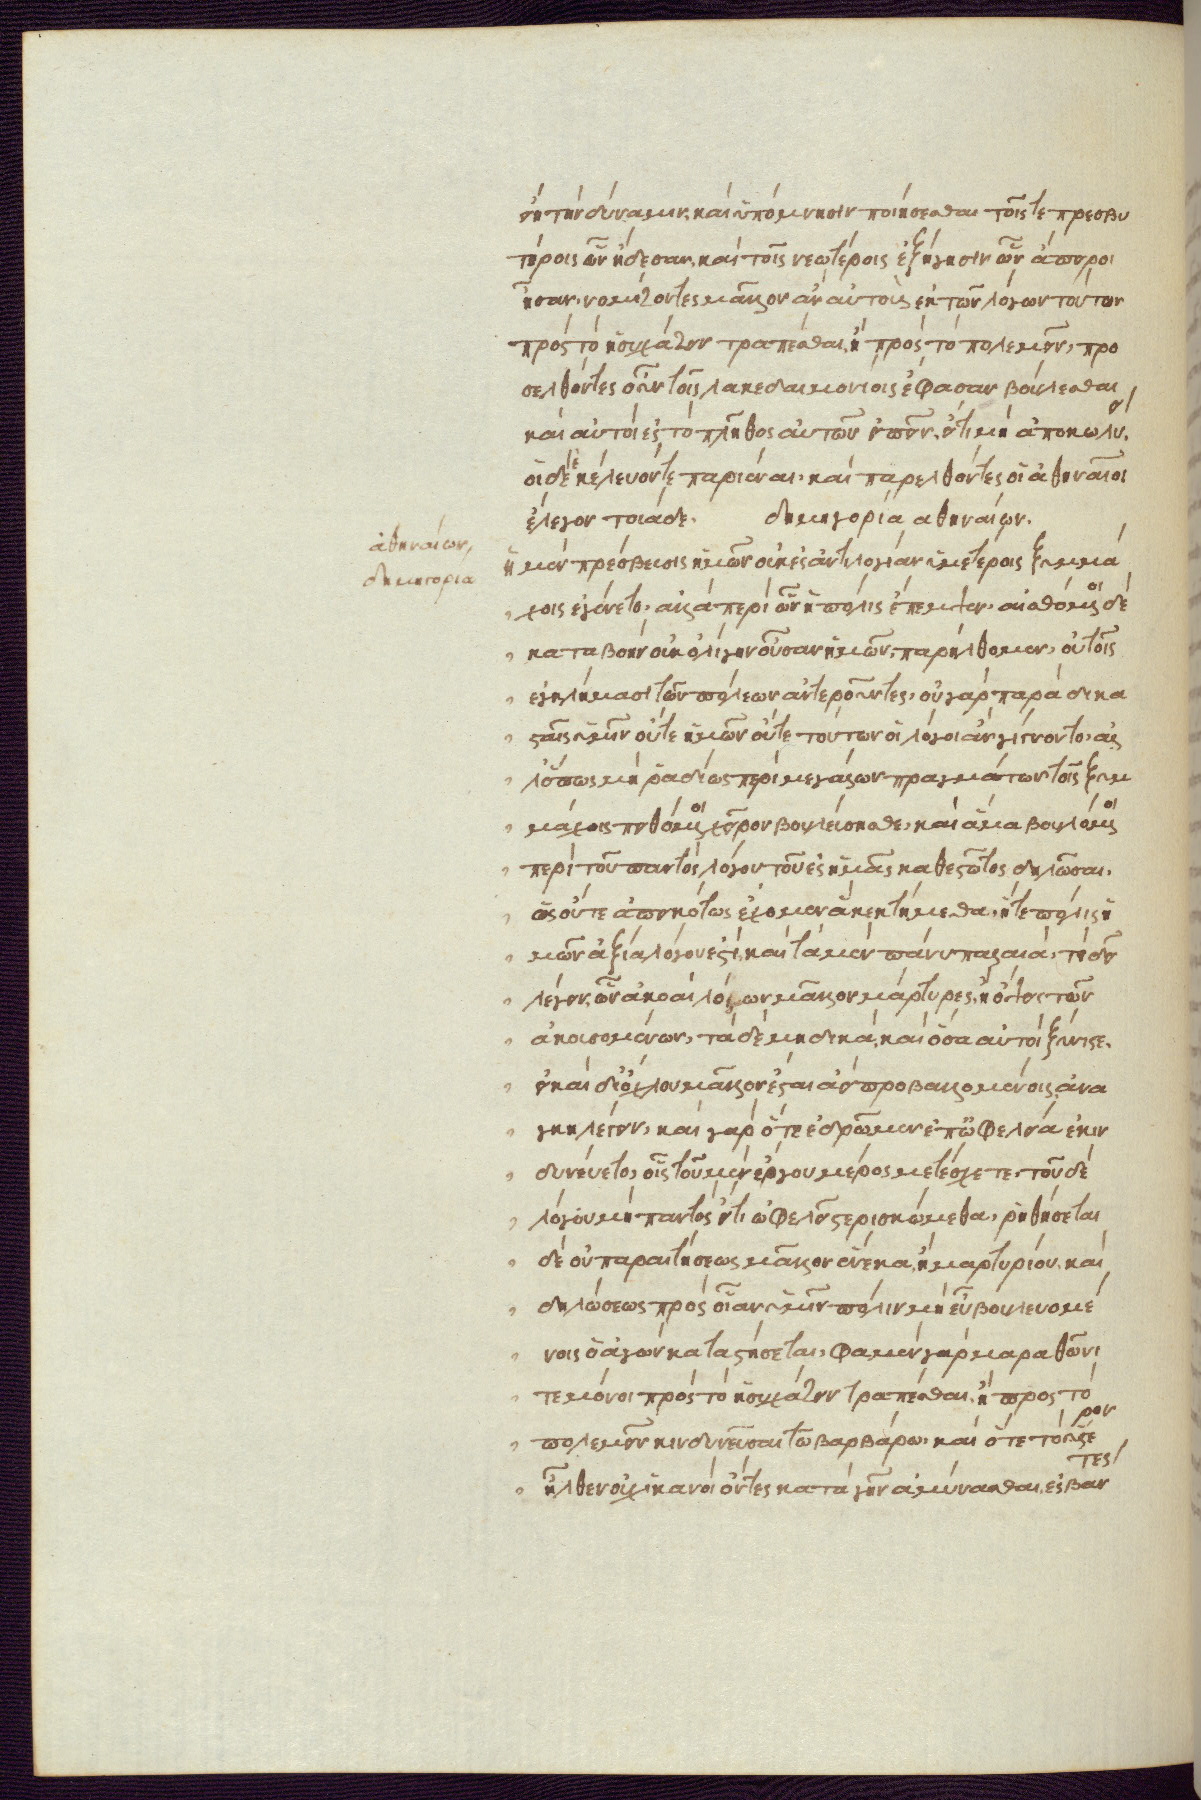 ειη την δύναμιν, καὶ ὑπόμνησιν ποιήσεσθαι τοῖς τε πρεσβυ
τέροις ὧν ἤδεσαν, καὶ τοῖς νεωτέροις ἐξήγησιν ὧν ἄπειροι
ἦσαν, νομίζοντες μᾶλλον ἂν αὐτοὺς ἐκ τῶν λόγων τούτων
πρὸς τὸ ἡσυχάζειν τραπέσθαι, ἢ πρὸς τὸ πολεμεῖν, προ
σελθόντες οὖν τοῖς λακεδαιμονίοις ἔφασαν βούλεσθαι
καὶ αὐτοὶ ἐς τὸ πλῆθος αὐτῶν εἰπεῖν, εἴ τι μὴ ἀποκωλύει.
οἱ δὲ ἐκέλευόν τε παριέναι, καὶ παρελθόντες οἱ ἀθηναῖοι
ἔλεγον τοιάδε. δημηγορία αθηναίων.
ἀθηναίων,
δημηγορία
ἡ μὲν πρέσβευσις ἡμῶν οὐκ ἐς ἀντιλογίαν ὑμετέροις ξυμμά
χοις ἐγένετο, ἀλλὰ περὶ ὧν ἡ πόλις ἔπεμψεν, αἰσθόμενοι δὲ
καταβοὴν οὐκ ὀλίγην οὖσαν ἡμῶν, παρήλθομεν, οὐ τοῖς
εγκλήμασι τῶν πόλεων ἀντεροῦντες, οὐ γὰρ παρὰ δικα
σταῖς ὑμῖν οὔτε ἡμῶν οὔτε τούτων οἱ λόγοι ἂν γίγνοιντο, ἀλ
λ' ὅπως μὴ ῥαδίως περὶ μεγάλων πραγμάτων τοῖς ξυμ
μάχοις πειθόμενοι χεῖρον βουλεύσησθε, καὶ ἅμα βουλόμενοι
περὶ τοῦ παντὸς λόγου τοῦ ἐς ἡμᾶς καθεστῶτος δηλῶσαι,
ὡς οὔτε ἀπεικότως ἔχομεν ἃ κεκτήμεθα, ἥ τε πόλις ἡ
μῶν ἀξία λόγου ἐστί, καὶ τὰ μὲν πάνυ παλαιὰ, τί δεῖ
λέγειν, ὧν ἀκοαὶ λόγων μᾶλλον μάρτυρες, ἢ ὄψις τῶν
ἀκουσομένων, τὰ δὲ μηδικὰ, καὶ ὅσα αὐτοὶ ξύνιστε.
εἰ καὶ δι' ὄχλου μᾶλλον ἔσται ἀεὶ προβαλλομένοις, ἀνά
γκη λέγειν, καὶ γὰρ ὅτε ἐδρῶμεν ἐπ' ὠφελείᾳ ἐκιν
δυνεύετο, οἷς τοῦ μὲν ἔργου μέρος μετέσχετε, τοῦ δὲ
λόγου μὴ παντὸς εἴ τι ὠφελεῖ στερισκώμεθα, ῥηθήσεται
δὲ οὐ παραιτήσεως μᾶλλον ἕνεκα, ἢ μαρτυρίου, καὶ
δηλώσεως πρὸς οἵαν ὑμῖν πόλιν μὴ εὖ βουλευομέ
νοις ὁ ἀγὼν καταστήσεται, φαμὲν γὰρ μαραθῶνί
τε μόνοι πρὸς τὸ ἡσυχάζειν τραπέσθαι, ἢ προς τὸ
πολεμεῖν κινδυνεῦσαι τῶ βαρβάρω, καὶ ὅτε τὸ ὕστερον
ἦλθεν οὐχ ἱκανοὶ ὄντες κατὰ γῆν ἀμύνασθαι, ἐσβάντες